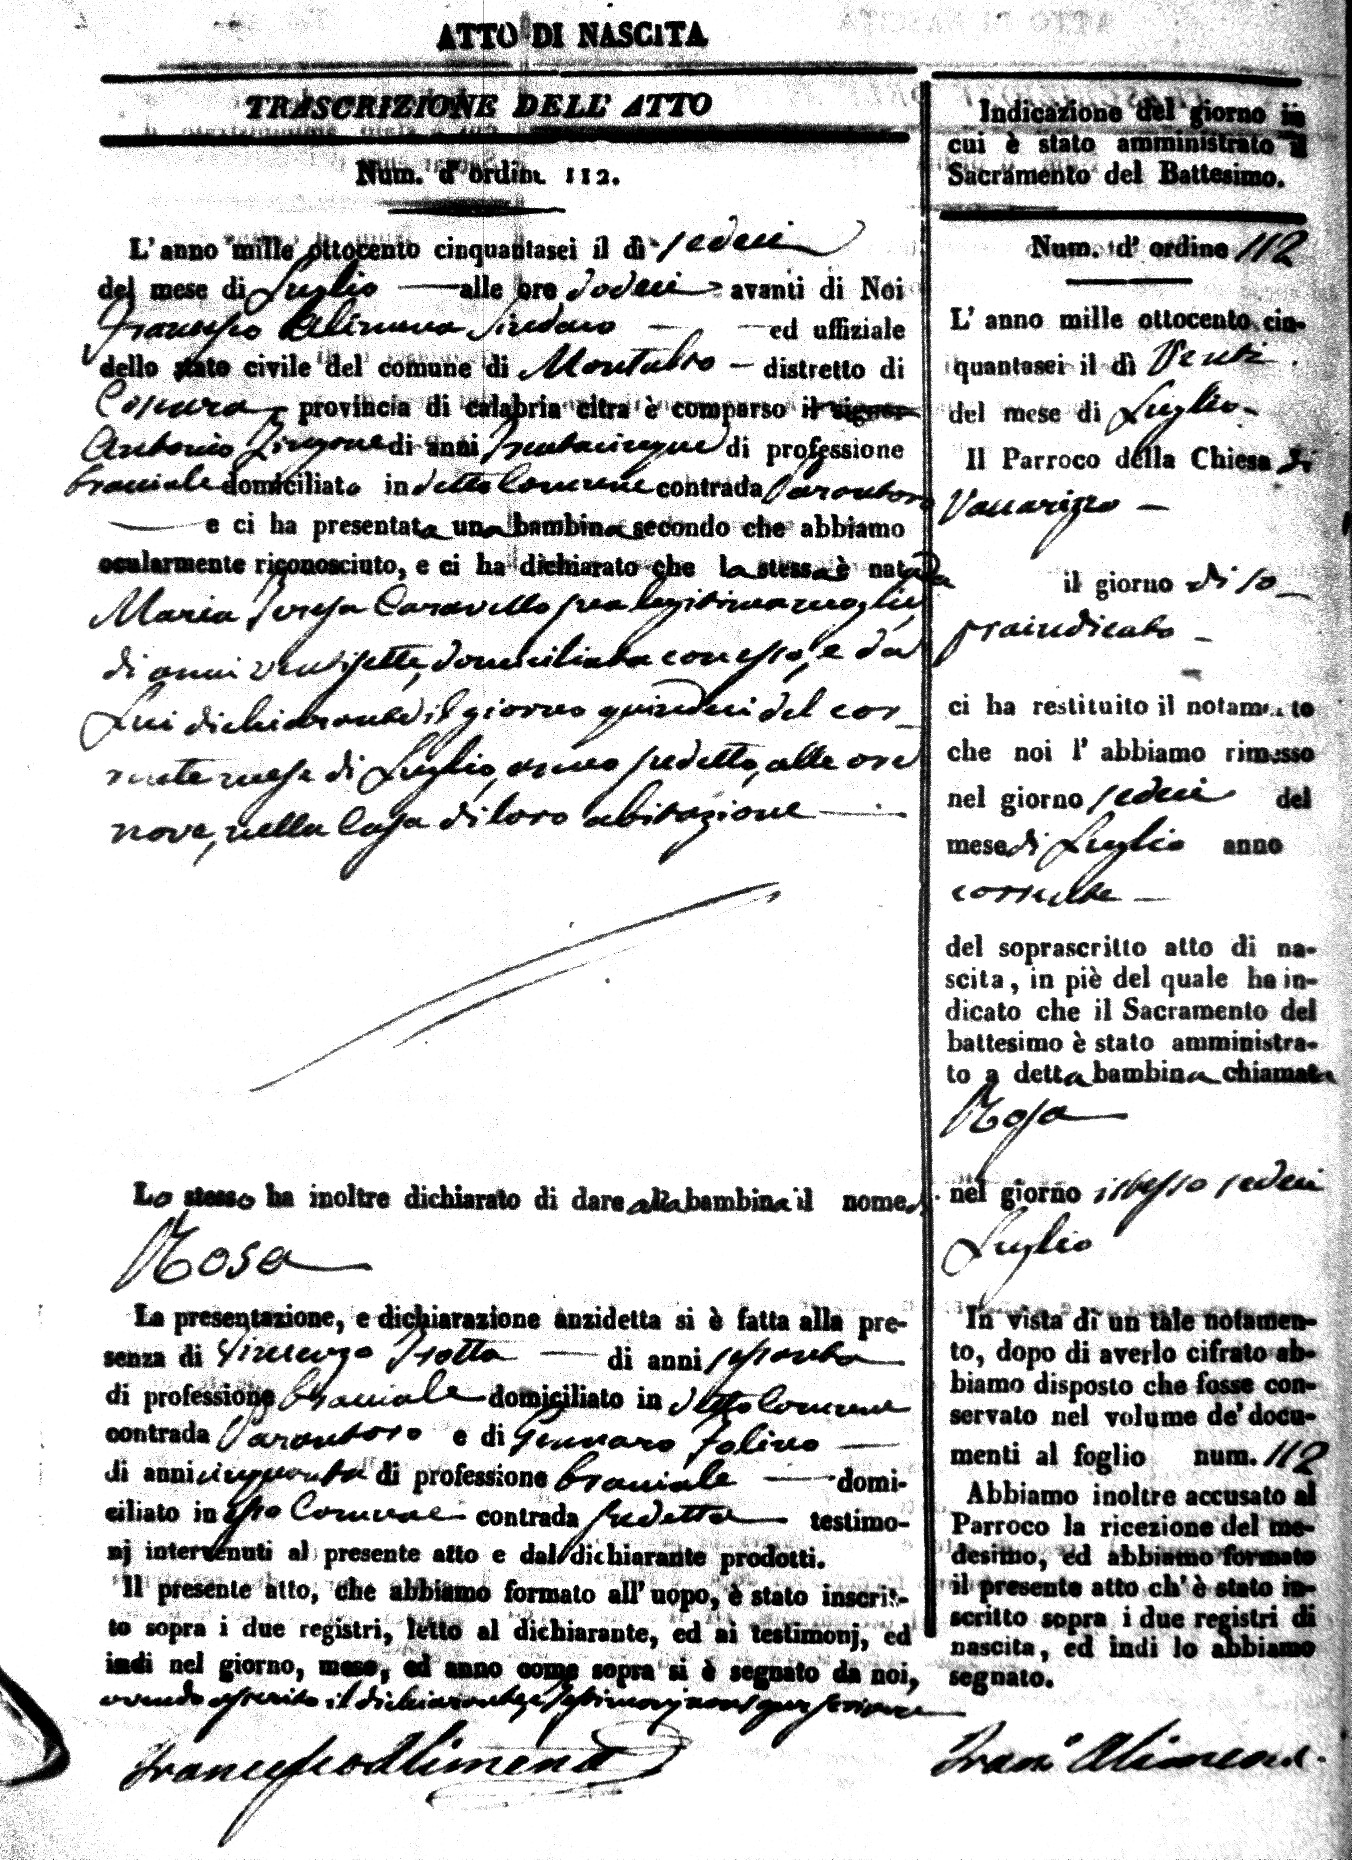 ATTO DI NASCITA
TRASCRIZIONE DELL' ATTO
Num. d' ordine 112.
L' anno mille ottocento cinquantasei il dì sedeci
del mese di Luglio alle ore dodeci avanti di Noi
Francesco Alimena Sindaco ed uffiziale
dello stato civile del comune di Montalto distretto di
Cosenza provincia di calabria citra è comparso il signor
Antonio Zingone di anni trentacinque di professione
braciale domiciliato in detto Comune contrada Parantoro
e ci ha presentata una bambina secondo che abbiamo
ocularmente riconosciuto, e ci ha dichiarato che la stessa è nata da
Maria Teresa Caravetta sua legitima moglie
di anni ventisette, domiciliata con esso, e da
Lui dichiarante il giorno quindeci del cor-
rente mese di Luglio, anno sudetto, alle ore
nove, nella Casa di loro abitazione
Lo stesso ha inoltre dichiarato di dare alla bambina il nome di
Rosa
La presentazione, e dichiarazione anzidetta si è fatta alla pre-
senza di Vincenzo Trotta di anni sessanta
di professione braciale domiciliato in detto Comune
contrada Parantoro e di Gennaro Folino
di anni cinquanta di professione braciale domi-
ciliato in esso Comune contrada sudetta testimo-
nj intervenuti al presente atto e dal dichiarante prodotti.
Il presente atto, che abbiamo formato all' uopo, è stato inscrit-
to sopra i due registri, letto al dichiarante, ed ai testimonj, ed
indi nel giorno, mese, ed anno come sopra si è segnato da noi,
avendo asserito il dichiarante, e testimonj non saper scrivere
Francesco Alimena
Indicazione del giorno in
cui è stato amministrato il
Sacramento del Battesimo.
Num. d' ordine 112
L' anno mille ottocento cin-
quantasei il dì Venti
del mese di Luglio
Il Parroco della Chiesa di
Vaccarizzo
il giorno di so-
praindicato
ci ha restituito il notamento
che noi l' abbiamo rimesso
nel giorno sedeci del
mese di Luglio anno
corrente
del soprascritto atto di na-
scita, in piè del quale ha in-
dicato che il Sacramento del
battesimo è stato amministra-
to a detta bambina chiamata
Rosa
nel giorno istesso sedeci
Luglio
In vista di un tale notamen-
to, dopo di averlo cifrato ab-
biamo disposto che fosse con-
servato nel volume de' docu-
menti al foglio num. 112
Abbiamo inoltre accusato al
Parroco la ricezione del me-
desimo, ed abbiamo formato
il presente atto ch' è stato in-
scritto sopra i due registri di
nascita, ed indi lo abbiamo
segnato.
Fran.o Alimena